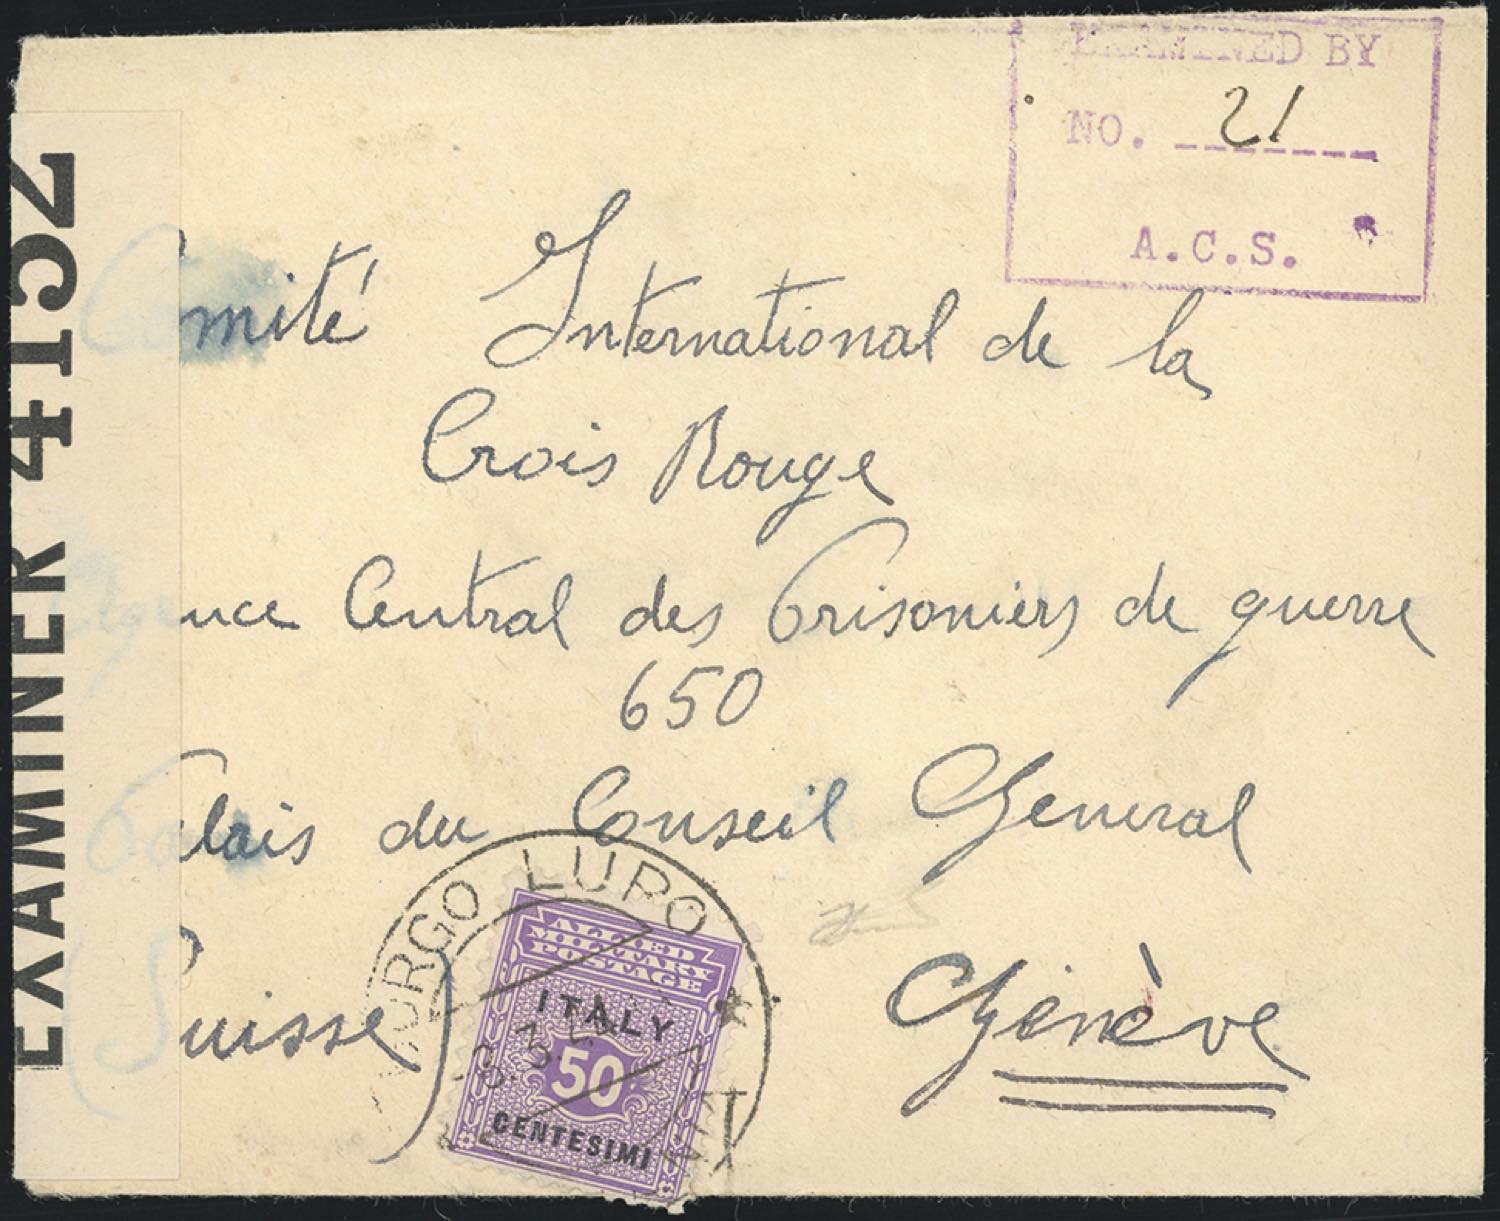 EXAMINED BY
NO. 21
A.C.S.
EXAMINER 4152
Comité International de la
Crois Rouge
Agence Central des Prisoniers de guerre
650
Palais du Conseil General
(Suisse) Génève
LUPO
ALLIED
MILITARY
POSTAGE
ITALY
50
CENTESIMI